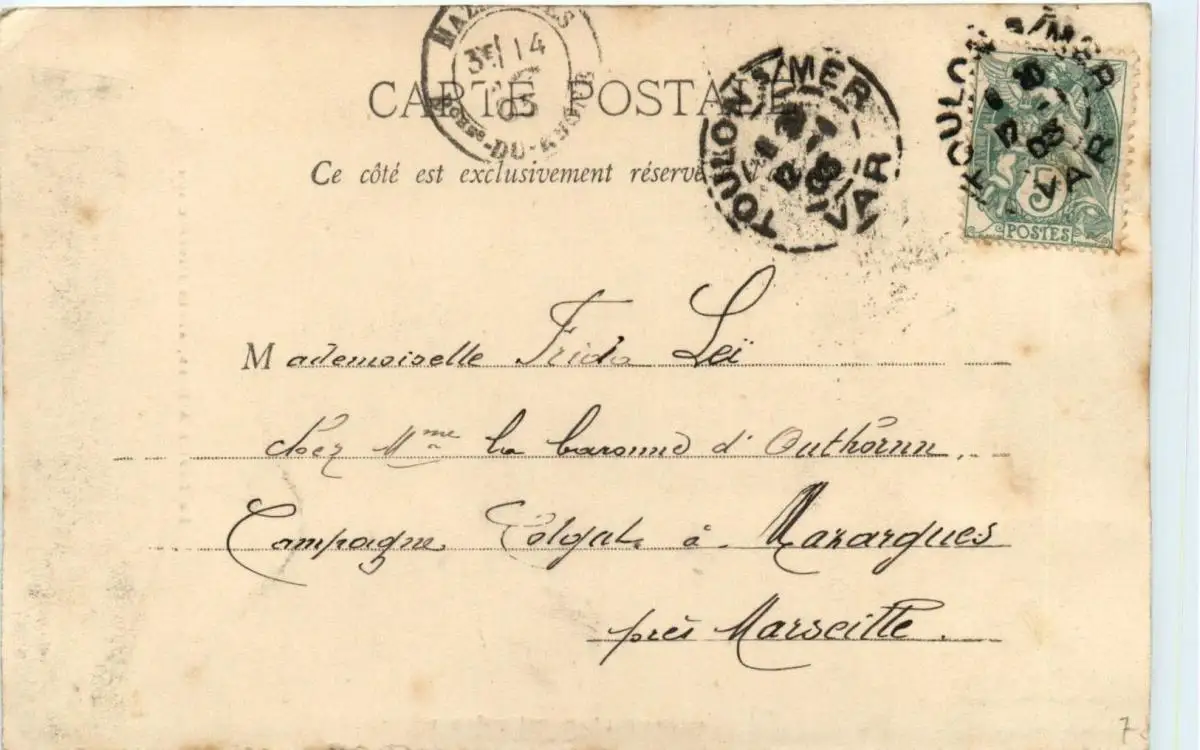 CARTE POSTALE
Ce côté est exclusivement réservé
MAZARGUES
3E 14
03
BCHES-DU-RHONE
TOULON S/MER
03
VAR
TOULON S/MER
10
03
VAR
5
POSTES
Mademoiselle Frida Leï
chez Mme la baronne d'
Campagne à Mazargues
près Marseille.
7